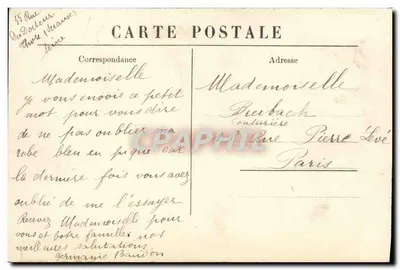 55 Rue
du Docteur
Seine
CARTE POSTALE
Correspondance
Mademoiselle
Je vous envoie ce petit
mot pour vous dire
de ne pas oublier ma
robe bleu en piqué car
la dernière fois vous avez
oublié de me l'essayer
Recevez Mademoiselle pour
vous et votre familles nos
meilleures salutations
Germaine
Adresse
Mademoiselle
Couturière
Rue Pierre Levé
Paris